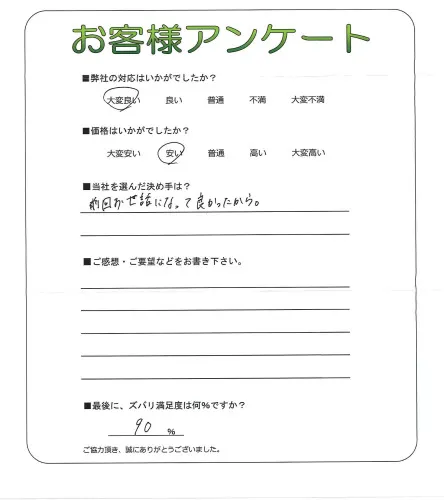 お客様アンケート
■弊社の対応はいかがでしたか？
大変良い 良い 普通 不満 大変不満
■価格はいかがでしたか？
大変安い 安い 普通 高い 大変高い
■当社を選んだ決め手は？
前回お世話になって良かったから。
■ご感想・ご要望などをお書き下さい。
■最後に、ズバリ満足度は何%ですか？
90 %
ご協力頂き、誠にありがとうございました。